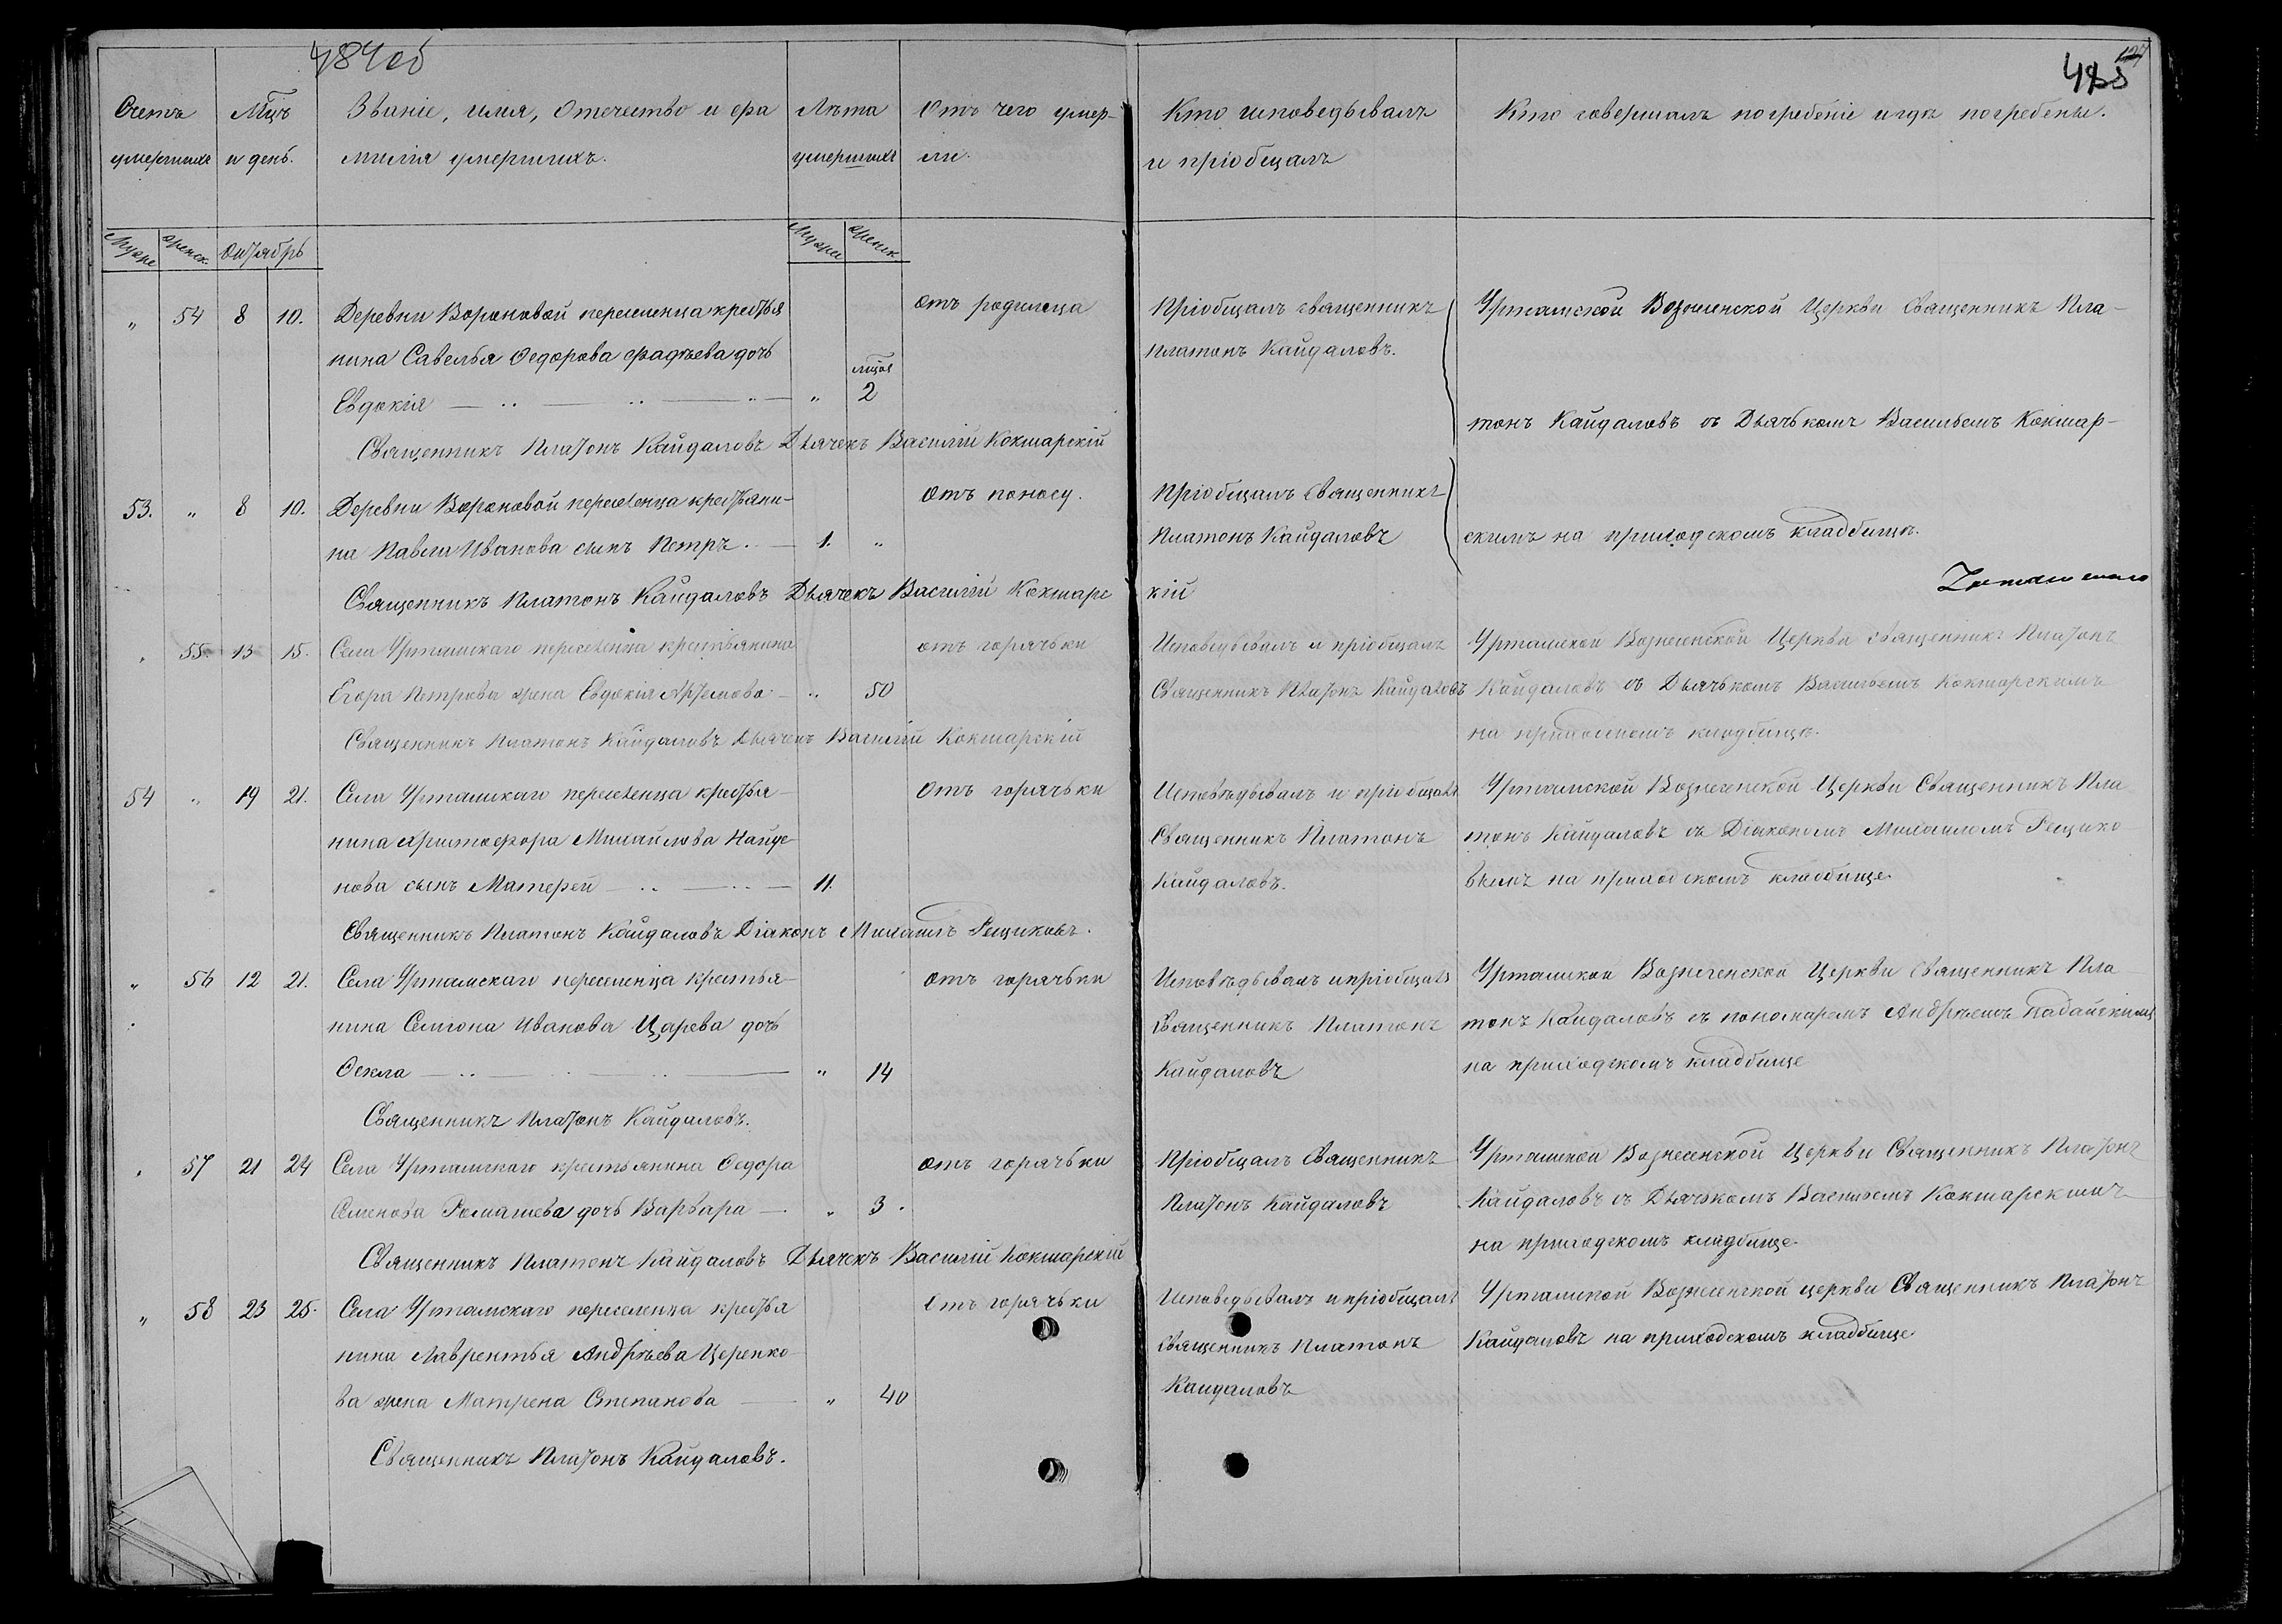 484об
127
485
Счетъ умершихъ
Мцъ и день.
Званіе, имя, отечество и фамилія умершихъ.
Лѣта умершихъ
Отъ чего умерли.
Кто исповедывалъ и пріобщалъ
Кто совершалъ погребеніе и где погребены.
Муже
женск.
Октябрь
Муже
женск.
" 54 8 10. Деревни Вороновой переселенца крестья
нина Савелья Ѳедорова Фадѣева дочь
Евдокія " мцов 2
отъ родимца
Пріобщалъ священникъ
Платонъ Кайдаловъ.
Уртамской Вознесенской Церкви Священникъ Пла-
тонъ Кайдаловъ съ Дьячькомъ Васильемъ Кокшар-
Священникъ Платонъ Кайдаловъ Дьячекъ Василій Кокшарскій
53. " 8 10. Деревни Вороновой переселенца крестьяни-
на Павла Иванова сынъ Петръ. 1. "
отъ поносу.
Пріобщалъ Священникъ
Платонъ Кайдаловъ
скимъ на приходскомъ кладбищѣ.
Священникъ Платонъ Кайдаловъ Дьячекъ Василій Кокшарс
кій
" 55. 13 15. Села Уртамскаго переселенца крестьянина
Егора Петрова жена Евдокія Артемова " 50
отъ горячьки
Исповедывалъ и пріобщалъ
Священникъ Платонъ Кайдаловъ
Уртамской Вознесенской Церкви Священникъ Платонъ
Кайдаловъ съ Дьячькомъ Васильемъ Кокшарскимъ
на приходскомъ кладбищѣ.
Священникъ Платонъ Кайдаловъ Дьячекъ Василій Кокшарскій
54 " 19 21. Села Уртамскаго переселенца крестья-
нина Христофора Михайлова Найде
нова сынъ Матѳей 11.
отъ горячьки
Исповѣдывалъ и пріобщалъ
Священникъ Платонъ
Кайдаловъ.
Уртамской Вознесенской Церкви Священникъ Пла
тонъ Кайдаловъ съ Діакономъ Михаиломъ Рещико
вымъ на приходскомъ кладбище
Священникъ Платонъ Кайдаловъ Діаконъ Михаилъ Рещиковъ.
" 56 12 21. Села Уртамскаго переселенца крестья-
нина Семіона Иванова Царева дочь
Ѳекла " 14
отъ горячьки
Исповѣдывалъ и пріобщалъ
Священникъ Платонъ
Кайдаловъ
Уртамской Вознесенской Церкви Священникъ Пла
тонъ Кайдаловъ съ пономаремъ Андреемъ
на приходскомъ кладбище
Священникъ Платонъ Кайдаловъ.
" 57 21 24 Села Уртамскаго крестьянина Ѳедора
Семенова Ромашева дочь Варвара " 3.
отъ горячьки
Пріобщалъ Священникъ
Платонъ Кайдаловъ
Уртамской Вознесенской Церкви Священникъ Платонъ
Кайдаловъ съ Дьячькомъ Васильемъ Кокшарскимъ
на приходскомъ кладбище.
Священникъ Платонъ Кайдаловъ Дьячекъ Василій Кокшарскій
" 58 23 25. Села Уртамскаго переселенца крестья
нина Лаврентья Андрѣева Церенко
ва жена Матрена Степанова " 40
отъ горячьки
Исповедывалъ и пріобщалъ
священникъ Платонъ
Кайдаловъ
Уртамской Вознесенской церкви Священникъ Платонъ
Кайдаловъ на приходскомъ кладбище
Священникъ Платонъ Кайдаловъ.